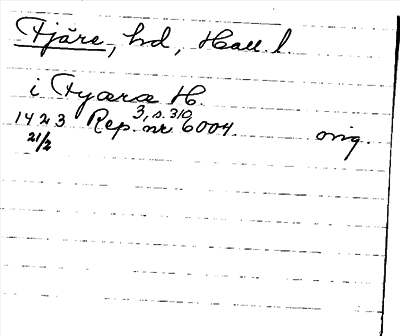 Fjäre, hd, Hall. l.
i Fyæræ H.
1423 Rep. 3, s. 310 nr 6004 orig.
21/2